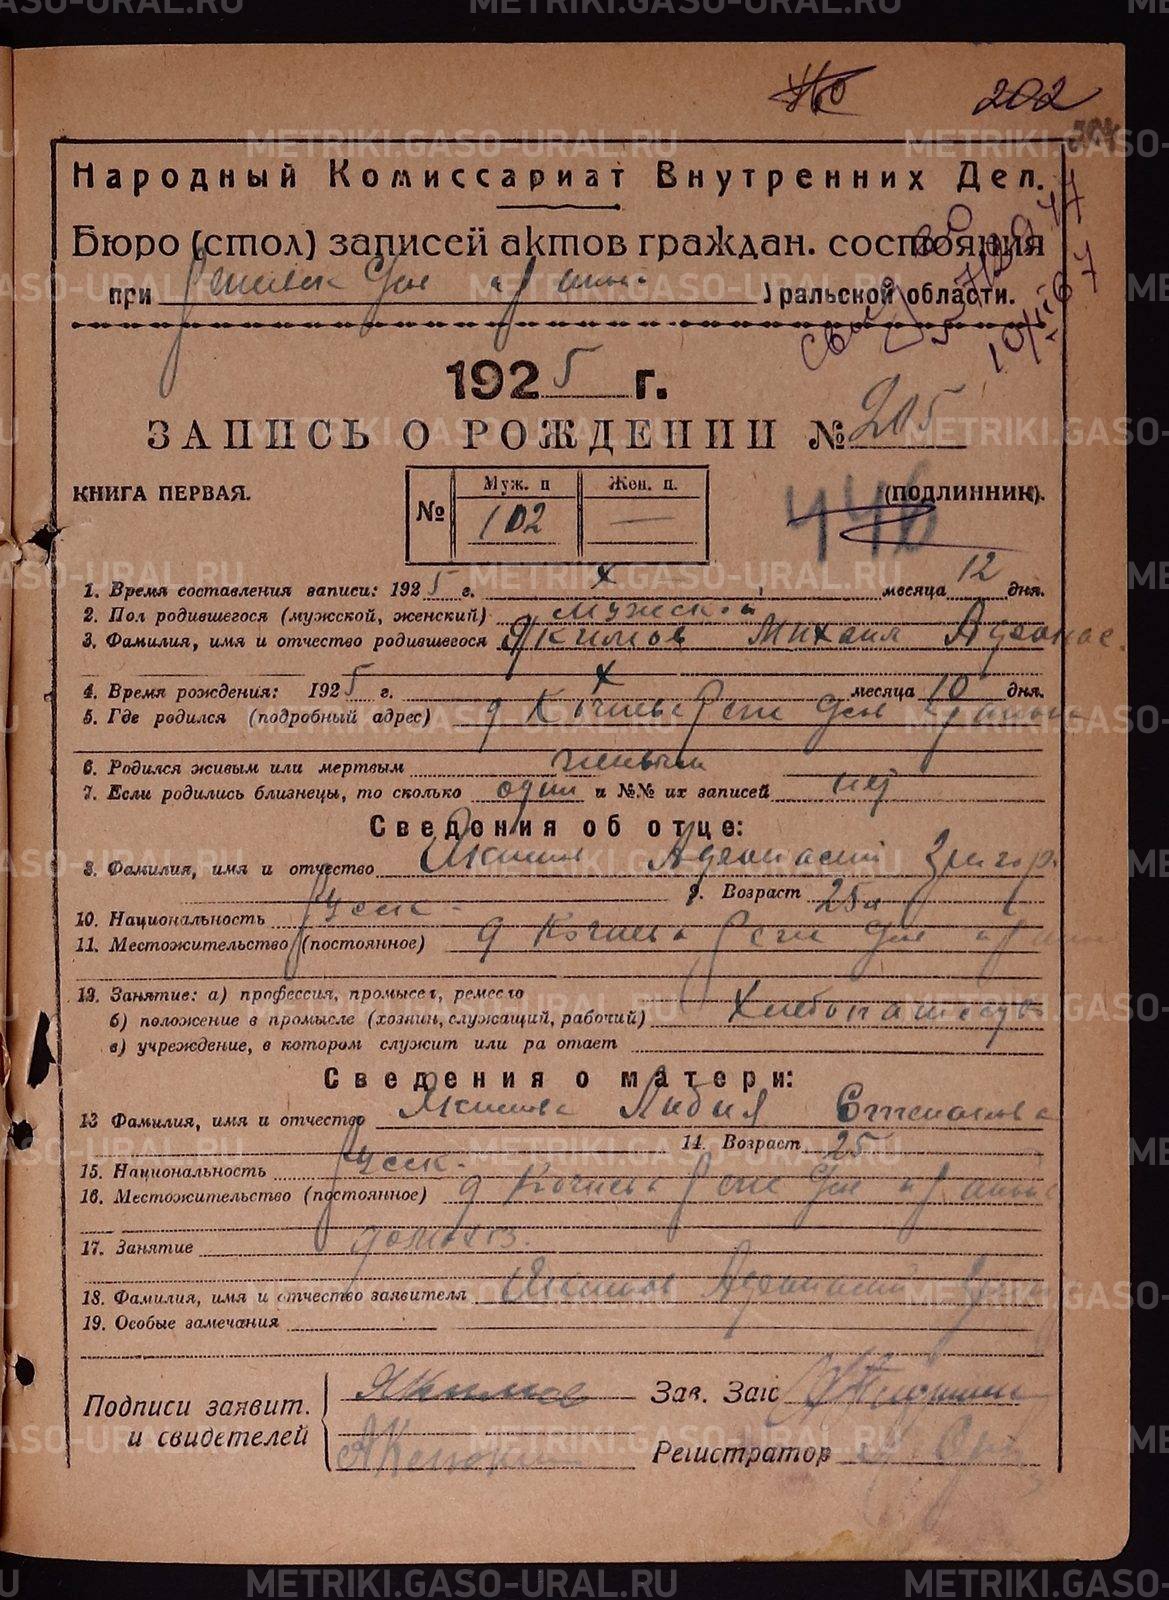 202
Народный Комиссариат Внутренних Дел.
Бюро (стол) записей актов граждан. состояния
при Уральской области.
1925 г.
ЗАПИСЬ О РОЖДЕНИИ № 205
КНИГА ПЕРВАЯ. (ПОДЛИННИК).
№ Муж. п Жен. п.
102 —
446
1. Время составления записи: 1925 г. X месяца 12 дня.
2. Пол родившегося (мужской, женский) мужской
3. Фамилия, имя и отчество родившегося Якимов Михаил Афонас.
4. Время рождения: 1925 г. X месяца 10 дня.
5. Где родился (подробный адрес) д
6. Родился живым или мертвым живым
7. Если родились близнецы, то сколько один и №№ их записей нет
Сведения об отце:
8. Фамилия, имя и отчество Якимов Афонасий Григор.
9. Возраст 25 л
10. Национальность Русск.
11. Местожительство (постоянное) д
12. Занятие: а) профессия, промысел, ремесло
б) положение в промысле (хозяин, служащий, рабочий) Хлебопашество
в) учреждение, в котором служит или ра отает
Сведения о матери:
13 Фамилия, имя и отчество Якимова Лидия Степановна
14. Возраст 25
15. Национальность Русск.
16. Местожительство (постоянное) д
17. Занятие домохоз.
18. Фамилия, имя и отчество заявителя Якимов Афонасий
19. Особые замечания
Подписи заявит. Якимов Зав. Загс
и свидетелей Регистратор
METRIKI.GASO-URAL.RU